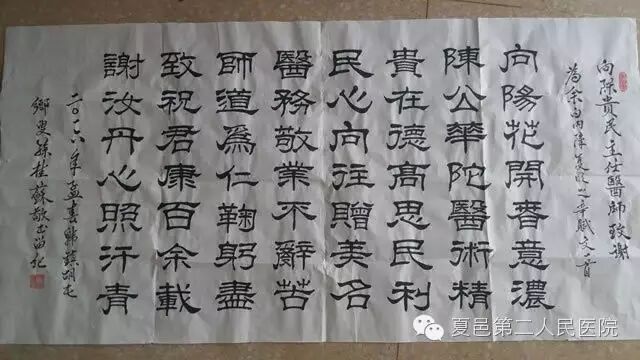 向陳貴民主任醫師致謝
向陽花開春意濃
陳公華陀醫術精
貴在德高思民利
民心向往贈美名
醫務敬業不辭苦
師道為仁鞠躬盡
致祝君康百余載
謝汝丹心照汗青
二〇一六年孟春
夏邑第二人民医院